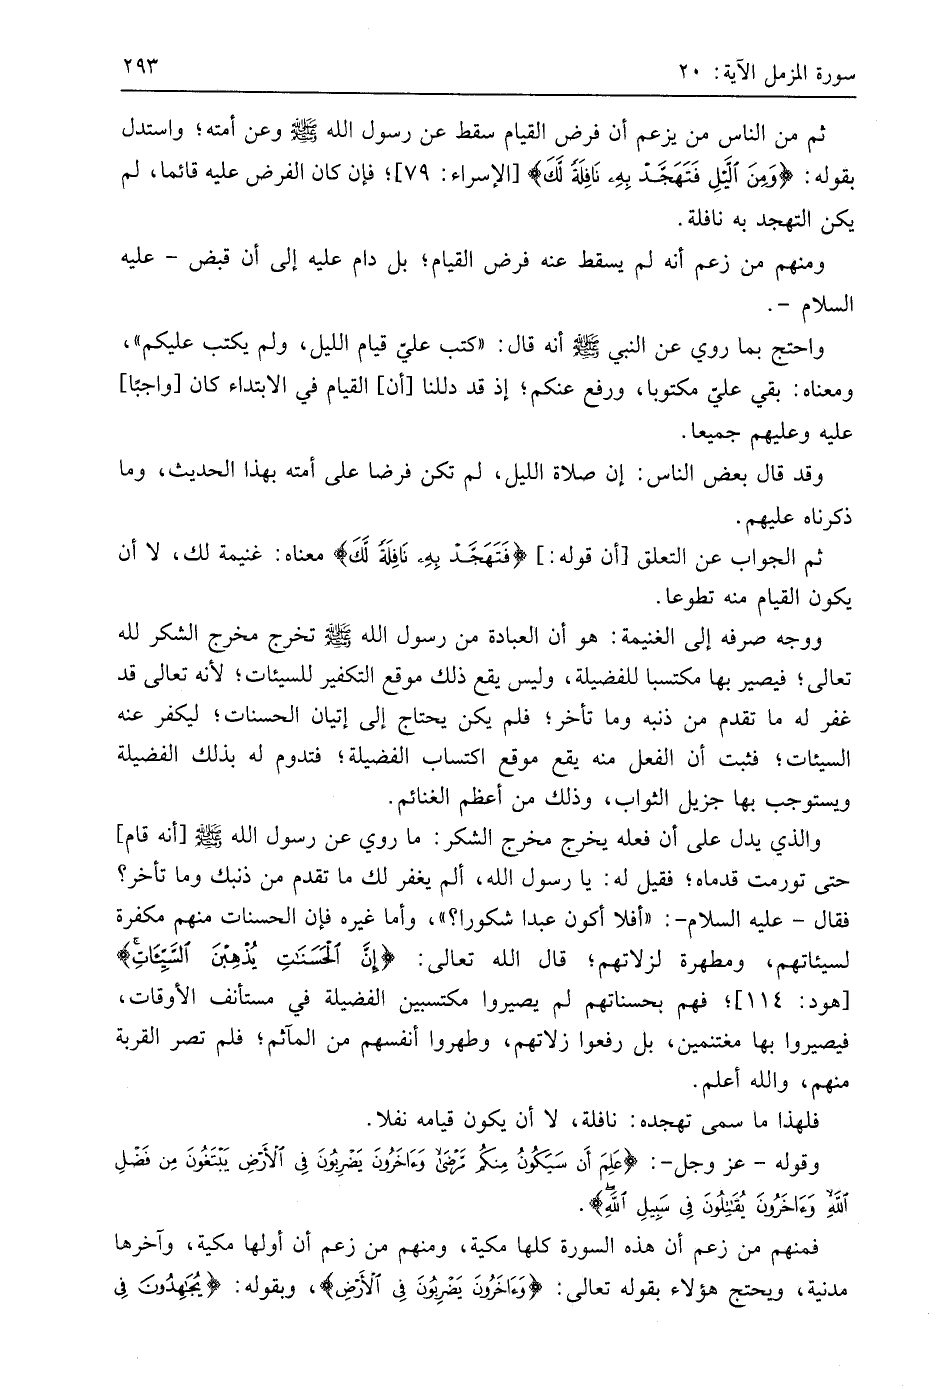 سورة المزمل الآية: ٢٠ ٢٩٣
ثم من الناس من يزعم أن فرض القيام سقط عن رسول الله ﷺ وعن أمته؛ واستدل
بقوله: ﴿وَمِنَ ٱلَّيۡلِ فَتَهَجَّدۡ بِهِۦ نَافِلَةٗ لَّكَ﴾ [الإسراء: ٧٩]؛ فإن كان الفرض عليه قائما، لم
يكن التهجد به نافلة.
ومنهم من زعم أنه لم يسقط عنه فرض القيام؛ بل دام عليه إلى أن قبض – عليه
السلام –.
واحتج بما روي عن النبي ﷺ أنه قال: «كتب عليّ قيام الليل، ولم يكتب عليكم»،
ومعناه: بقي عليّ مكتوبا، ورفع عنكم؛ إذ قد دللنا [أن] القيام في الابتداء كان [واجبًا]
عليه وعليهم جميعا.
وقد قال بعض الناس: إن صلاة الليل، لم تكن فرضا على أمته بهذا الحديث، وما
ذكرناه عليهم.
ثم الجواب عن التعلق [أن قوله:] ﴿فَتَهَجَّدۡ بِهِۦ نَافِلَةٗ لَّكَ﴾ معناه: غنيمة لك، لا أن
يكون القيام منه تطوعا.
ووجه صرفه إلى الغنيمة: هو أن العبادة من رسول الله ﷺ تخرج مخرج الشكر لله
تعالى؛ فيصير بها مكتسبا للفضيلة، وليس يقع ذلك موقع التكفير للسيئات؛ لأنه تعالى قد
غفر له ما تقدم من ذنبه وما تأخر؛ فلم يكن يحتاج إلى إتيان الحسنات؛ ليكفر عنه
السيئات؛ فثبت أن الفعل منه يقع موقع اكتساب الفضيلة؛ فتدوم له بذلك الفضيلة
ويستوجب بها جزيل الثواب، وذلك من أعظم الغنائم.
والذي يدل على أن فعله يخرج مخرج الشكر: ما روي عن رسول الله ﷺ [أنه قام]
حتى تورمت قدماه؛ فقيل له: يا رسول الله، ألم يغفر لك ما تقدم من ذنبك وما تأخر؟
فقال – عليه السلام–: «أفلا أكون عبدا شكورا؟»، وأما غيره فإن الحسنات منهم مكفرة
لسيئاتهم، ومطهرة لزلاتهم؛ قال الله تعالى: ﴿إِنَّ ٱلۡحَسَنَٰتِ يُذۡهِبۡنَ ٱلسَّيِّـَٔاتِۚ﴾
[هود: ١١٤]؛ فهم بحسناتهم لم يصيروا مكتسبين الفضيلة في مستأنف الأوقات،
فيصيروا بها مغتنمين، بل رفعوا زلاتهم، وطهروا أنفسهم من المآثم؛ فلم تصر القربة
منهم، والله أعلم.
فلهذا ما سمى تهجده: نافلة، لا أن يكون قيامه نفلا.
وقوله – عز وجل–: ﴿عَلِمَ أَن سَيَكُونُ مِنكُم مَّرۡضَىٰ وَءَاخَرُونَ يَضۡرِبُونَ فِي ٱلۡأَرۡضِ يَبۡتَغُونَ مِن فَضۡلِ
ٱللَّهِ وَءَاخَرُونَ يُقَٰتِلُونَ فِي سَبِيلِ ٱللَّهِۖ﴾.
فمنهم من زعم أن هذه السورة كلها مكية، ومنهم من زعم أن أولها مكية، وآخرها
مدنية، ويحتج هؤلاء بقوله تعالى: ﴿وَءَاخَرُونَ يَضۡرِبُونَ فِي ٱلۡأَرۡضِ﴾، وبقوله: ﴿يُجَٰهِدُونَ فِي